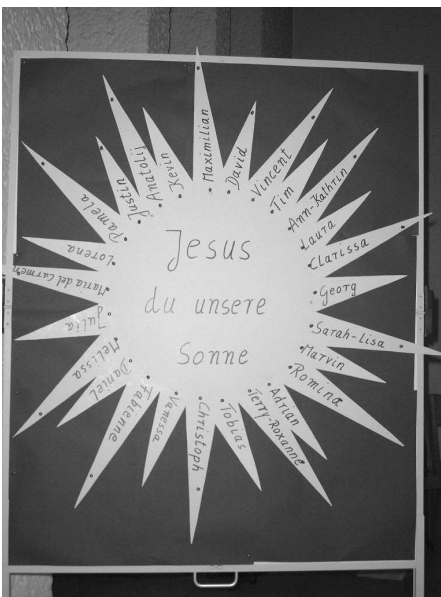 Jesus
du unsere
Sonne
Maximilian
David
Vincent
Tim
Ann-Kathrin
Laura
Clarissa
Georg
Sarah-Lisa
Marvin
Romina
Adrian
Terry-Roxanne
Tobias
Christoph
Vanessa
Fabienne
Daniel
Melissa
Julia
Maria del Carmen
Lorena
Pamela
Justin
Anatolij
Kevin